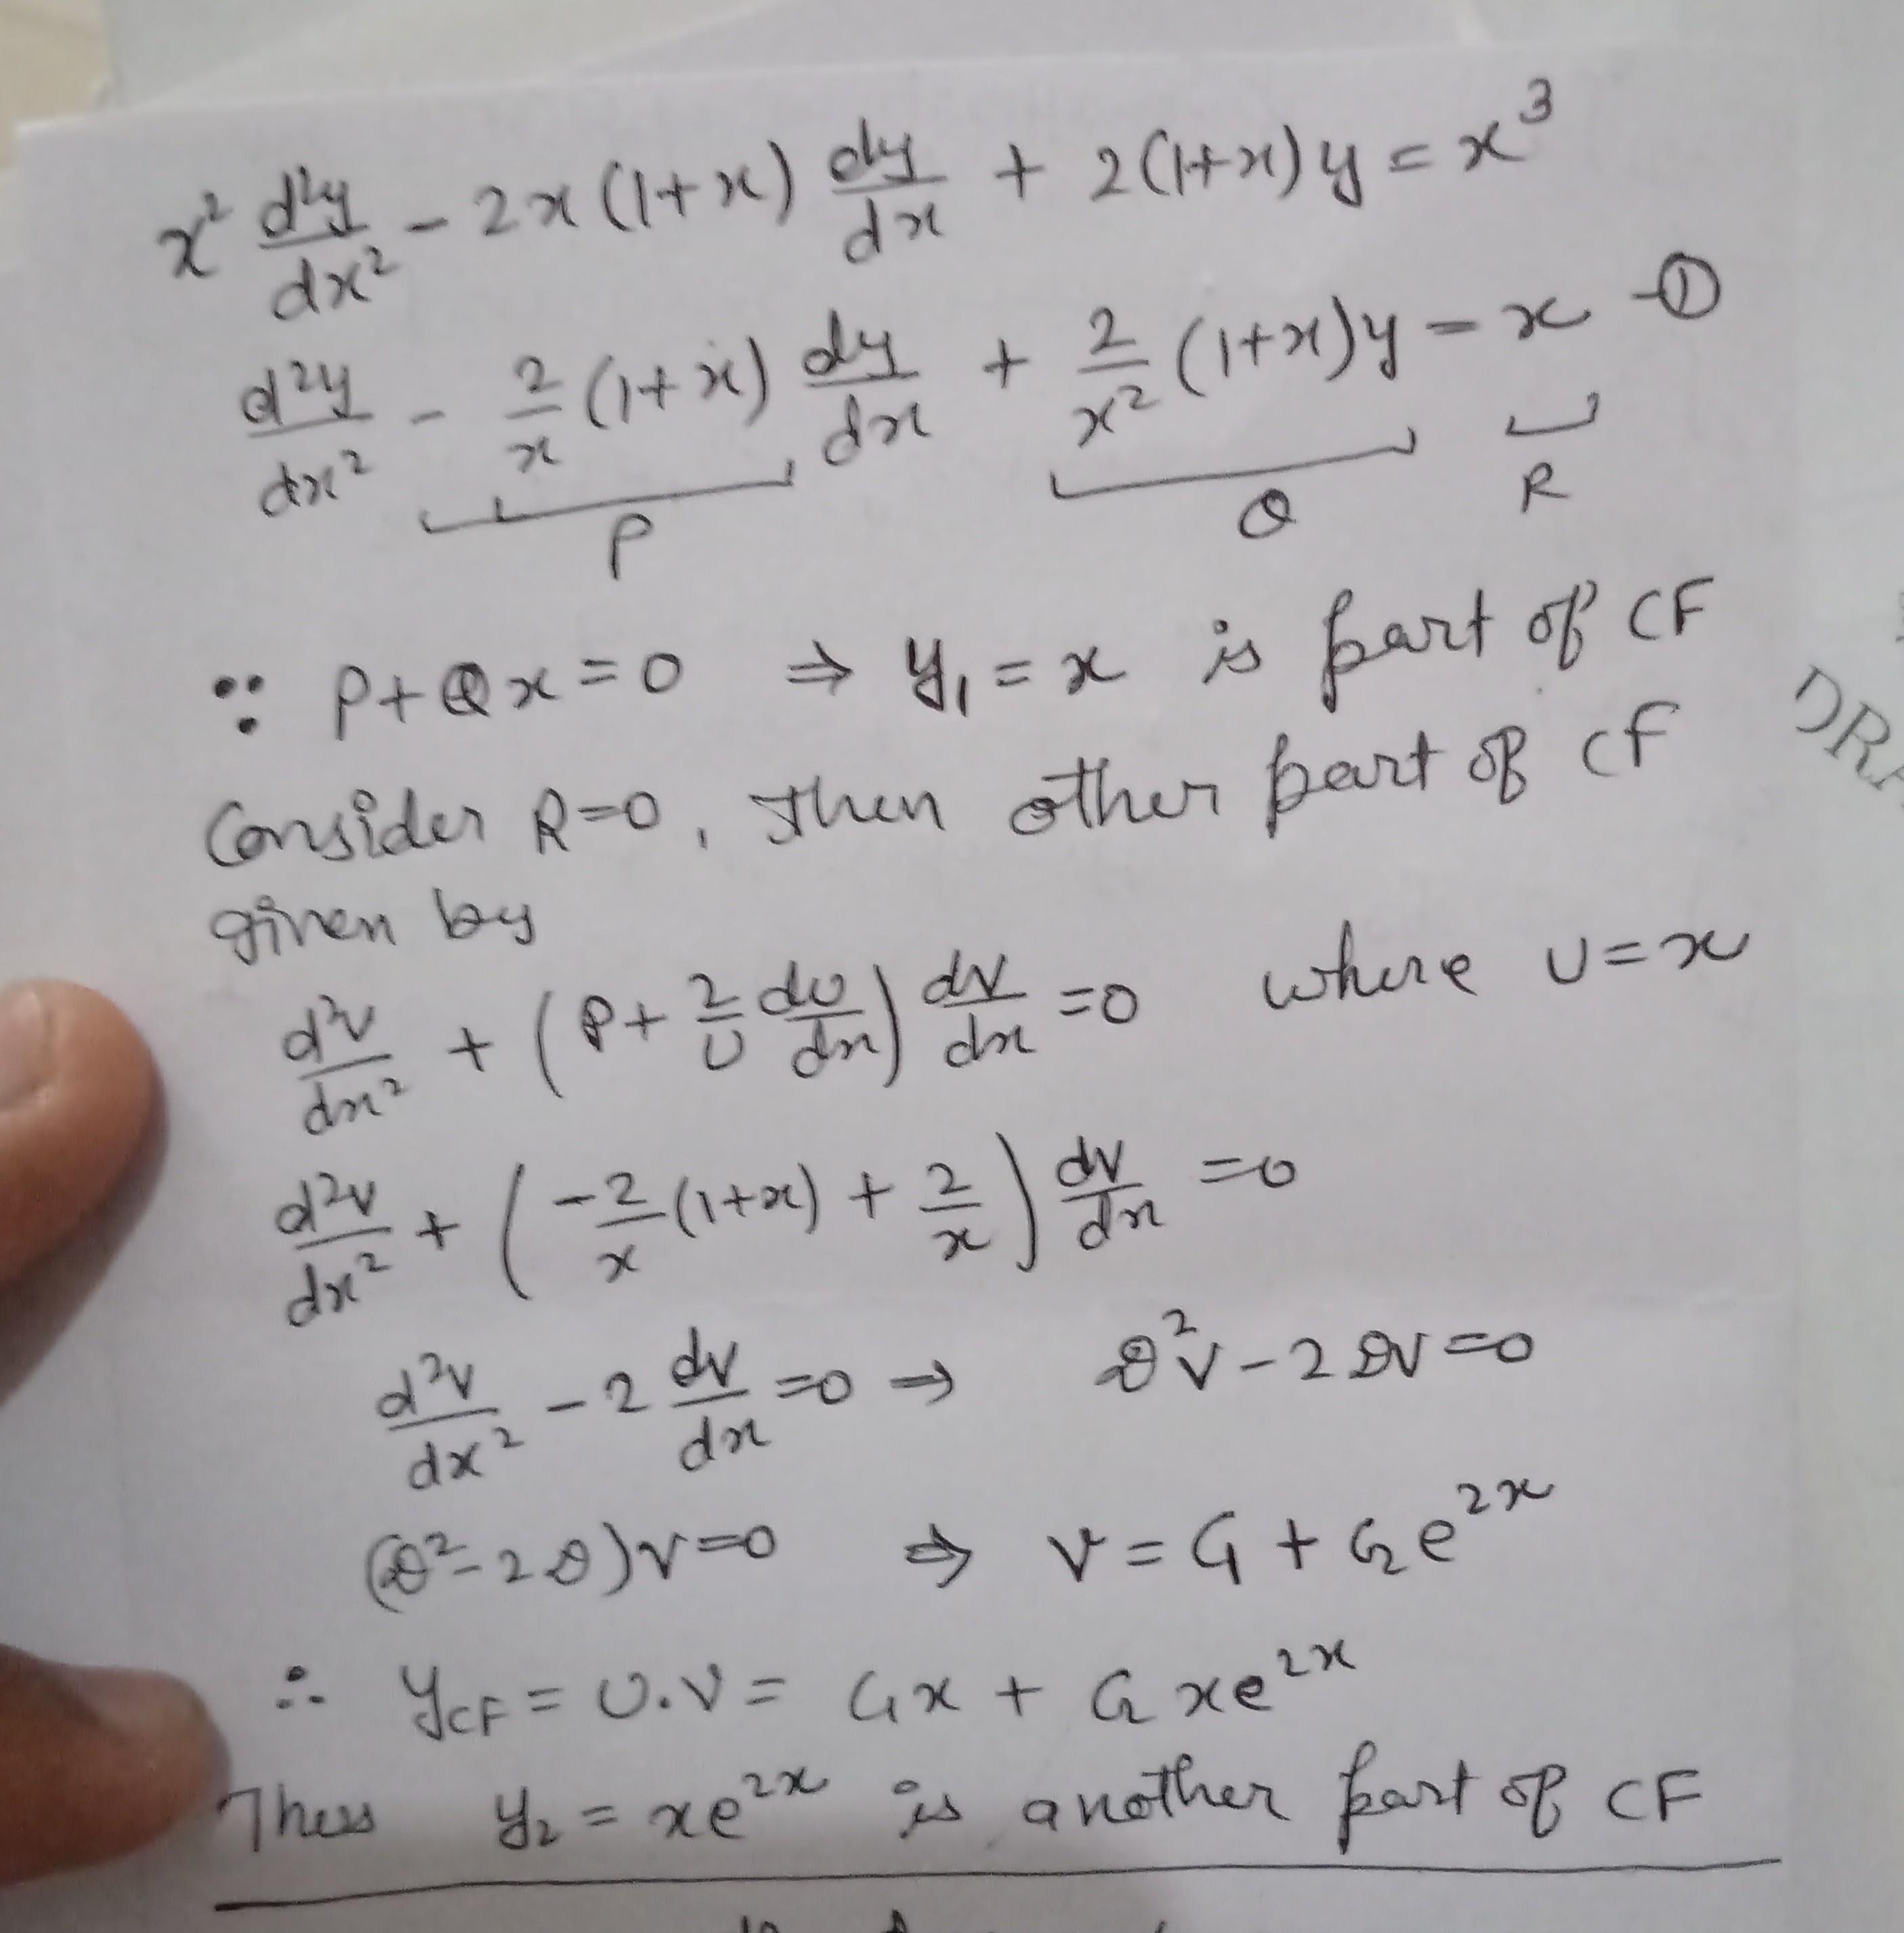 x² d²y/dx² - 2x(1+x) dy/dx + 2(1+x)y = x³
d²y/dx² - 2/x (1+x) dy/dx + 2/x² (1+x)y = x -①
P Q R
∵ P+Qx=0 ⇒ y₁=x is part of CF
Consider R=0, then other part of CF
given by
d²v/dx² + (P + 2/U dU/dx) dv/dx =0 where U=x
d²v/dx² + (-2/x (1+x) + 2/x) dv/dx =0
d²v/dx² - 2 dv/dx =0 ⇒ D²v-2Dv=0
(D²-2D)v=0 ⇒ v = C₁ + C₂e²ˣ
∴ y_CF = U.V = C₁x + C₂ xe²ˣ
Thus y₂ = xe²ˣ is another part of CF
DRA